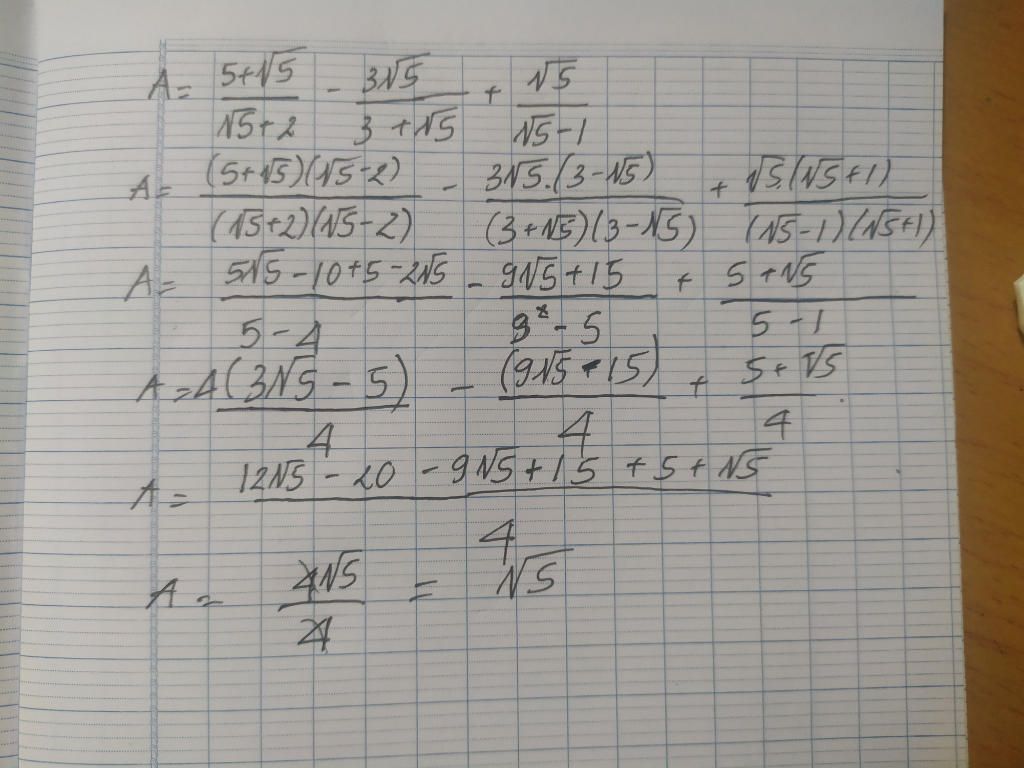 A = (5+√5)/(√5+2) - 3√5/(3+√5) + √5/(√5-1)
A = (5+√5)(√5-2)/(√5+2)(√5-2) - 3√5.(3-√5)/(3+√5)(3-√5) + √5.(√5+1)/(√5-1)(√5+1)
A = (5√5-10+5-2√5)/(5-4) - (9√5+15)/(9-5) + (5+√5)/(5-1)
A = 4(3√5-5)/4 - (9√5-15)/4 + (5+√5)/4
A = (12√5-20-9√5+15+5+√5)/4
A = 4√5/4 = √5